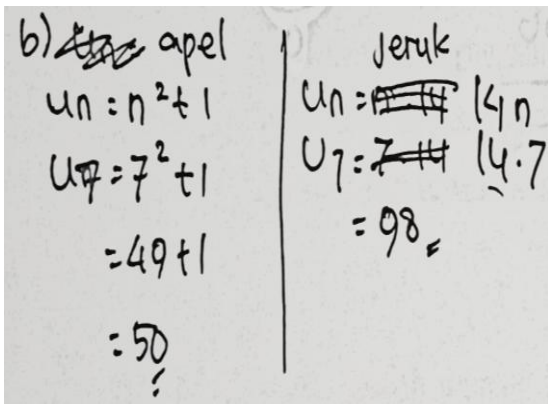 b) apel
Un = n² + 1
U7 = 7² + 1
= 49 + 1
= 50
Jeruk
Un = 14n
U7 = 14.7
= 98